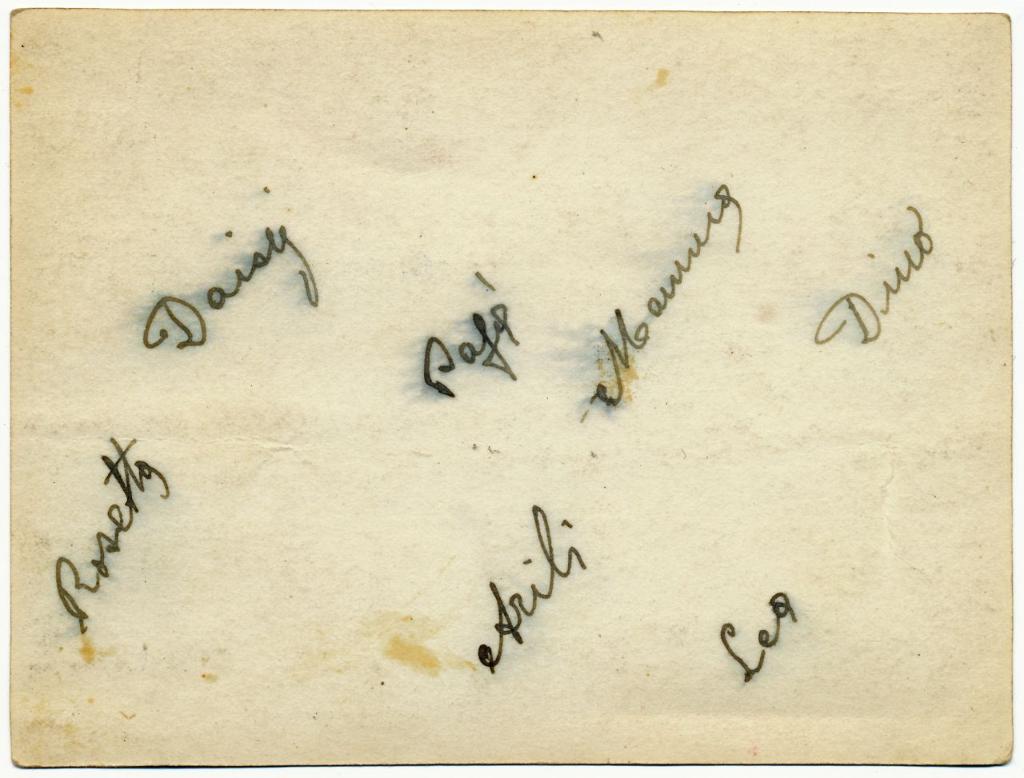 Daisy
Papà
Mamma
Dino
Rosetta
Arili
Lea